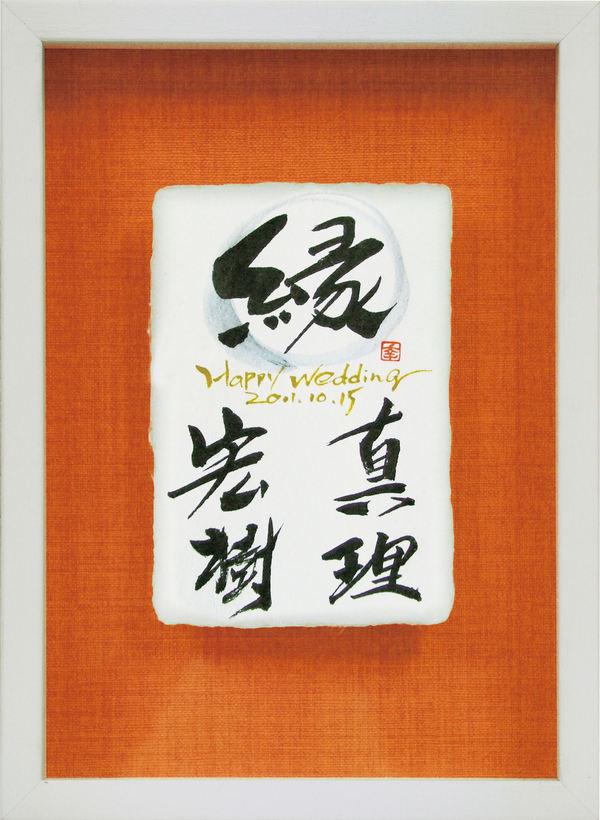 縁
幸
Happy Wedding
2001.10.15
真理
宏樹